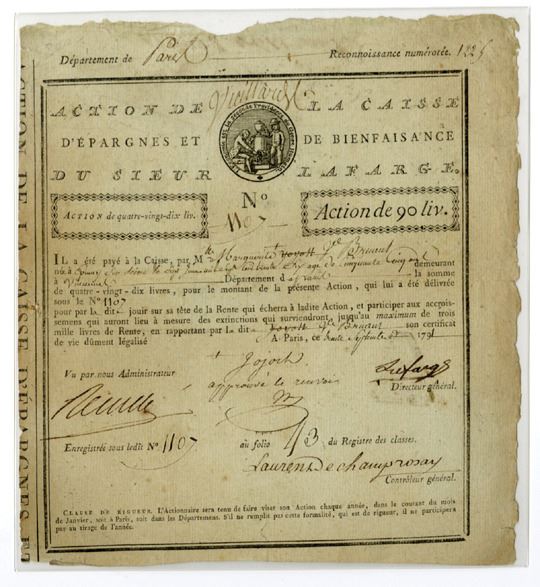 Département de Paris Reconnoissance numérotée. 1225
Vieillard
ACTION DE LA CAISSE
D'ÉPARGNES ET DE BIENFAISANCE
DU SIEUR LAFARGE.
N°
1107
ACTION de quatre-vingt-dix liv.
Action de 90 liv.
IL a été payé à la Caisse, par M Marguerite
demeurant
Département de la somme
de quatre-vingt-dix livres, pour le montant de la présente Action, qui lui a été délivrée
sous le N° 1107
pour par la dite jouir sur sa tête de la Rente qui écherra à ladite Action, et participer aux accrois-
semens qui auront lieu à mesure des extinctions qui surviendront, jusqu'au maximum de trois
mille livres de Rente, en rapportant par la dite son certificat
de vie dûment légalisé A Paris, ce 1791
Vu par nous Administrateur
approuvé le renvoi
Lafarge
Directeur général.
Enregistrée sous ledit N° 1107 au folio 113 du Registre des classes.
Laurent de champrosay
Contrôleur général.
CLAUSE DE RIGUEUR. L'Actionnaire sera tenu de faire viser son Action chaque année, dans le courant du mois
de Janvier, soit à Paris, soit dans les Départemens. S'il ne remplit pas cette formalité, qui est de rigueur, il ne participera
pas au tirage de l'année.
ACTION DE LA CAISSE D'ÉPARGNES ET